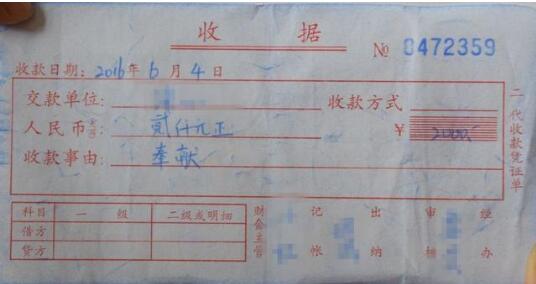 收据
№ 0472359
收款日期：2016年6月4日
交款单位： 收款方式
人民币（大写） 贰仟元正 ￥ 2000.
收款事由： 奉献
二代收款凭证单
科目 一级 二级或明细
借方
贷方
财会主管 记帐 出纳 审核 经办